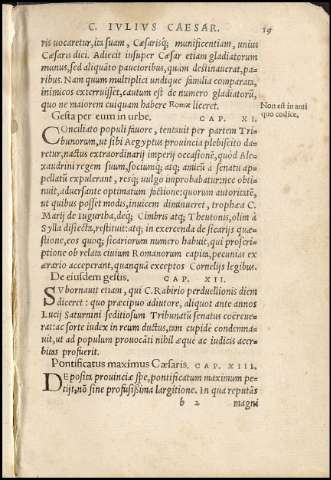 C. IVLIVS CAESAR. 19
ris uocaretur, ita suam, Cæsarisq; munificentiam, unius
Cæsaris dici. Adiecit insuper Cæsar etiam gladiatorum
munus, sed aliquāto paucioribus, quàm destinauerat, pa-
ribus. Nam quum multiplici undique familia comparata,
inimicos exterruisset, cautum est de numero gladiatorū,
quo ne maiorem cuiquam habere Romæ liceret.
Non est in anti
quo codice.
Gesta per eum in urbe. CAP. XI.
COnciliato populi fauore, tentauit per partem Tri-
bunorum, ut sibi Aegyptus prouincia plebiscito da-
retur, nactus extraordinarij imperij occasionē, quòd Ale-
xandrini regem suum, sociumq; atq; amicū à senatu ap-
pellatū expulerant, resq; uulgo improbabatur: nec obti-
nuit, aduersante optimatum factione: quorum autoritatē,
ut quibus posset modis, inuicem diminueret, trophæa C.
Marij de Iugurtha, deq; Cimbris atq; Theutonis, olim à
Sylla disiecta, restituit: atq; in exercenda de sicarijs quæ-
stione, eos quoq; sicariorum numero habuit, qui proscri-
ptione ob relata ciuium Romanorum capita, pecunias ex
ærario acceperant, quanquā exceptos Cornelijs legibus.
De eiusdem gestis. CAP. XII.
SVbornauit etiam, qui C. Rabirio perduellionis diem
diceret: quo præcipuo adiutore, aliquot ante annos
Lucij Saturnini seditiosum Tribunatū senatus coërcue-
rat: ac sorte iudex in reum ductus, tam cupidè condemna-
uit, ut ad populum prouocāti nihil æque ac iudicis acer-
bitas profuerit.
Pontificatus maximus Cæsaris. CAP. XIII.
DEposita prouinciæ spe, pontificatum maximum pe-
tijt, nō sine profusissima largitione. In qua reputās
b 2 magni